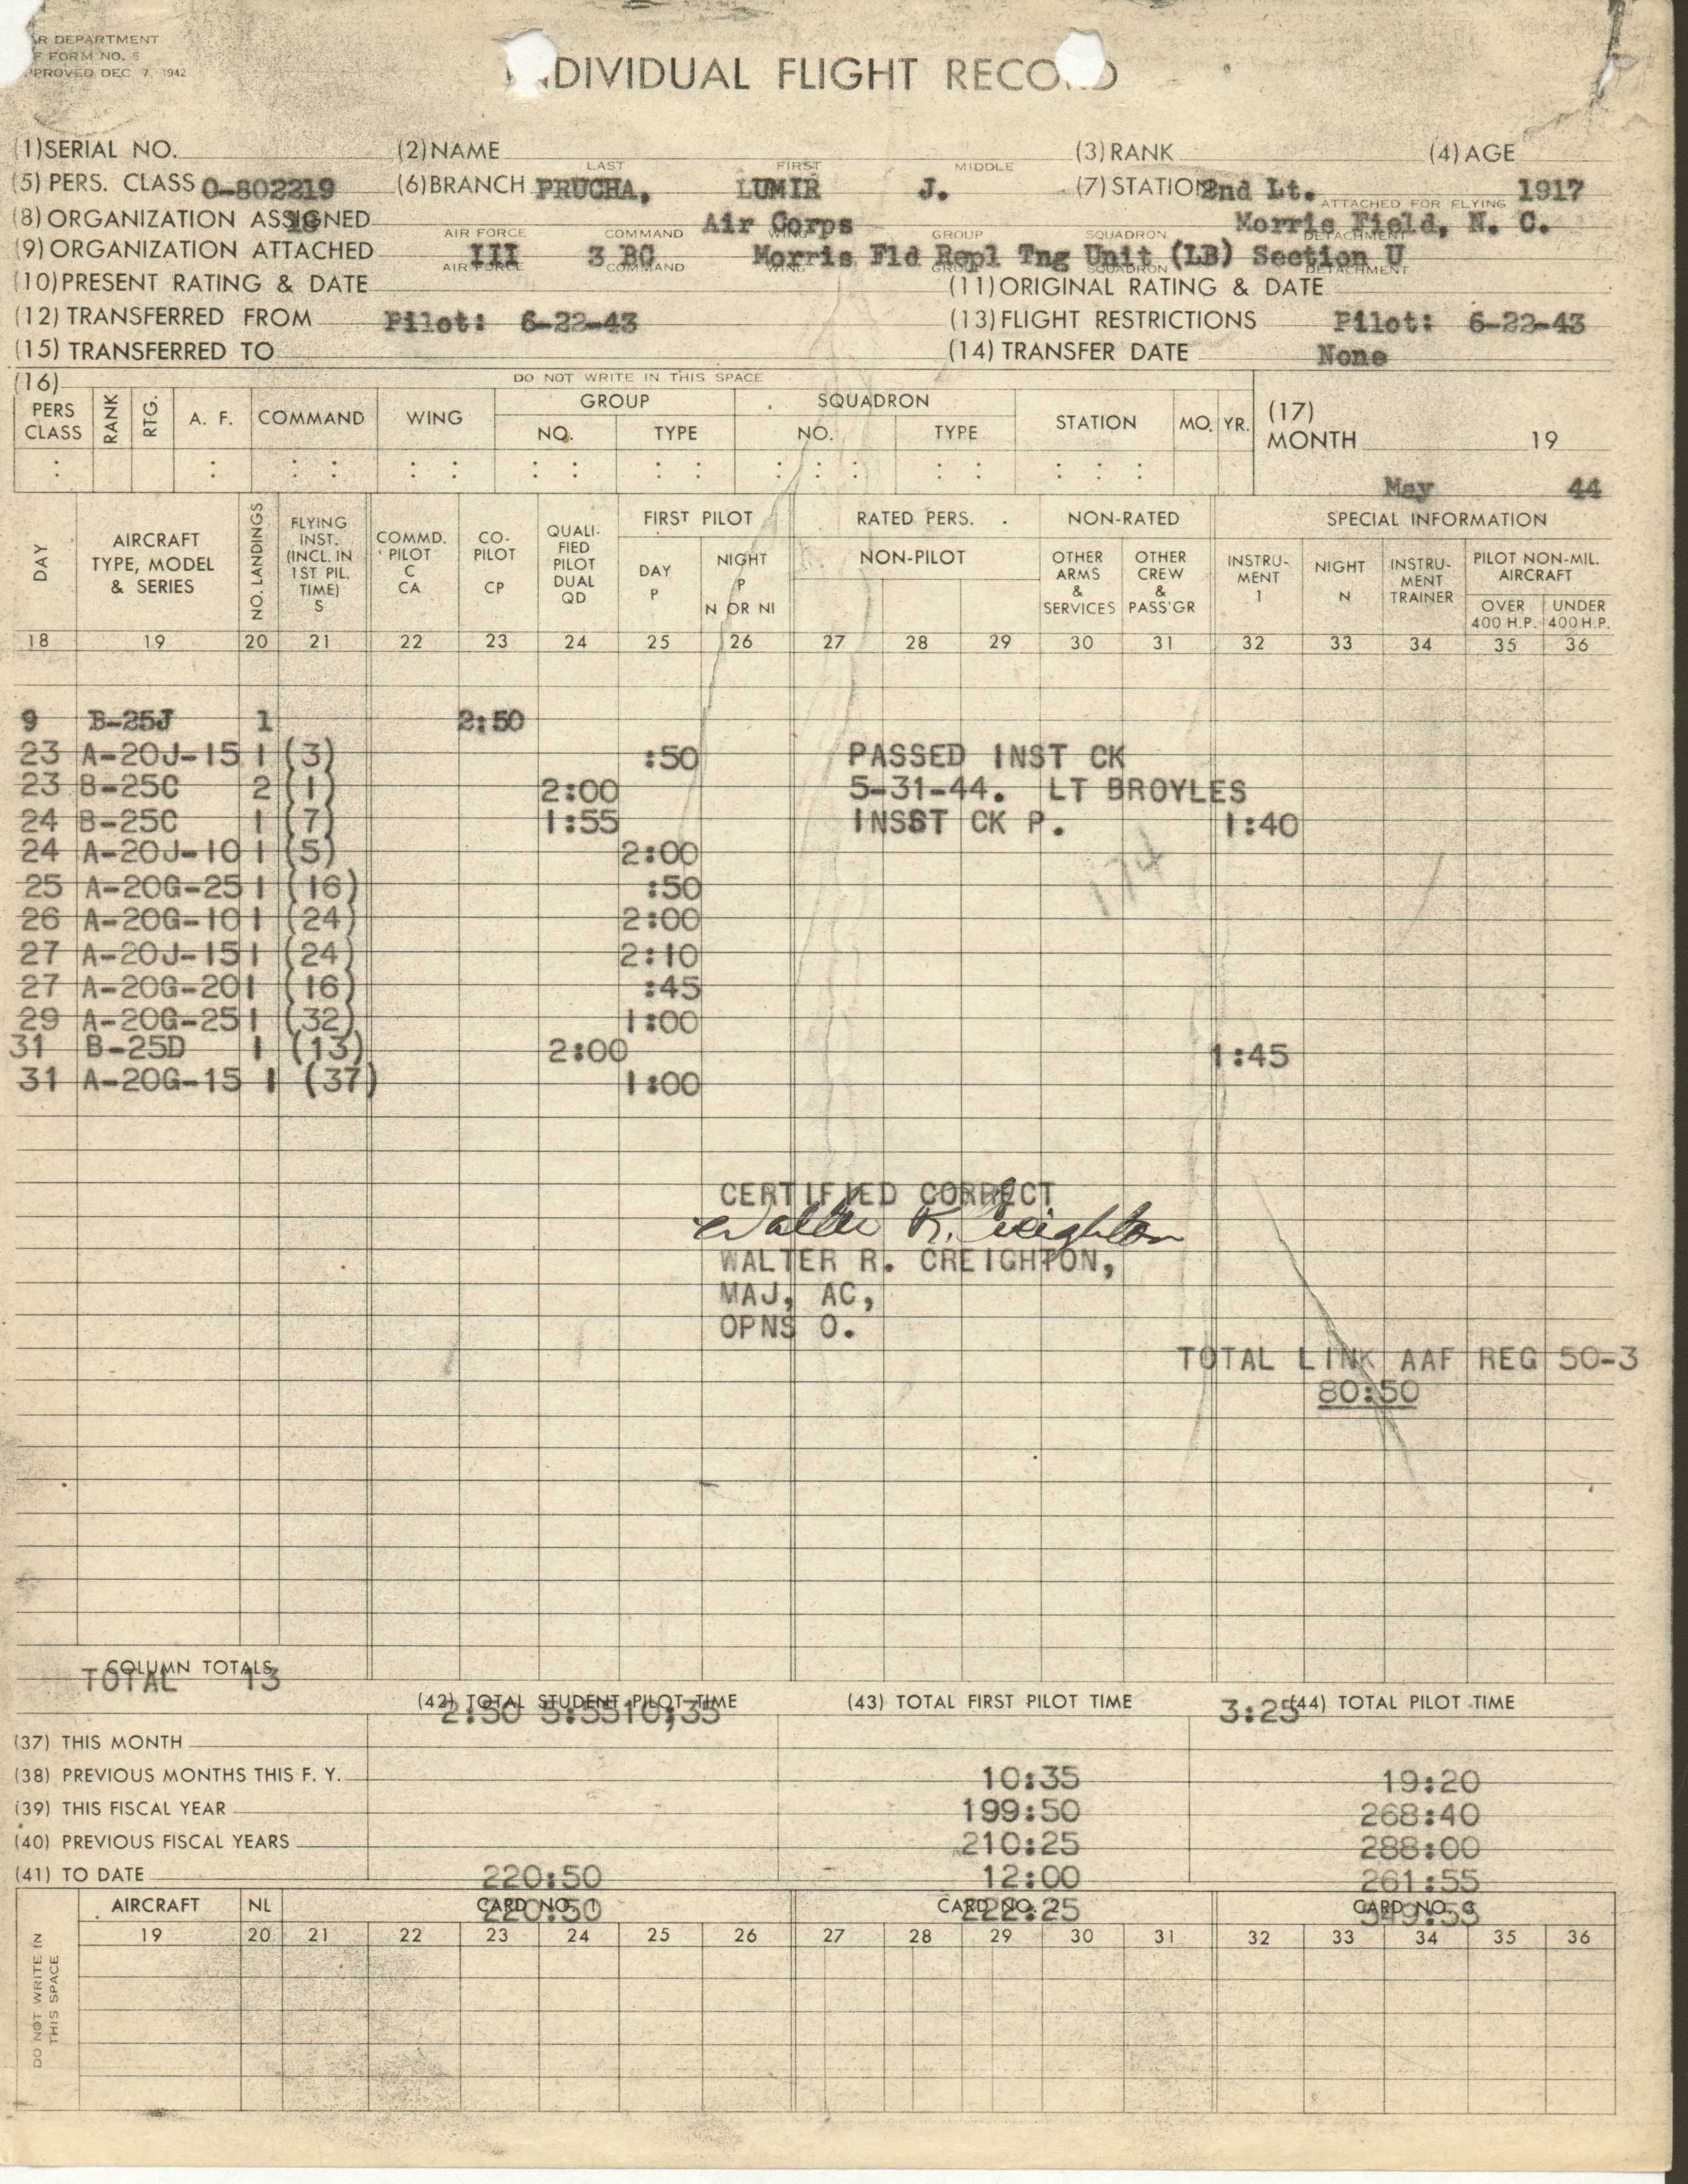 R DEPARTMENT
F FORM NO. 5
PPROVED DEC 7, 1942
INDIVIDUAL FLIGHT RECORD
(1) SERIAL NO. (2) NAME (3) RANK (4) AGE
LAST FIRST MIDDLE
(5) PERS. CLASS O-802219 (6) BRANCH PRUCHA, LUMIR J. (7) STATION 2nd Lt. 1917
ATTACHED FOR FLYING
(8) ORGANIZATION ASSIGNED 18 Air Corps Morris Field, N. C.
AIR FORCE COMMAND WING GROUP SQUADRON DETACHMENT
(9) ORGANIZATION ATTACHED III 3 BC Morris Fld Repl Tng Unit (LB) Section U
AIR FORCE COMMAND WING GROUP SQUADRON DETACHMENT
(10) PRESENT RATING & DATE (11) ORIGINAL RATING & DATE
(12) TRANSFERRED FROM Pilot: 6-22-43 (13) FLIGHT RESTRICTIONS Pilot: 6-22-43
(15) TRANSFERRED TO (14) TRANSFER DATE None
(16) DO NOT WRITE IN THIS SPACE
PERS CLASS RANK RTG. A. F. COMMAND WING GROUP NO. TYPE SQUADRON NO. TYPE STATION MO. YR. (17) MONTH 19
May 44
DAY AIRCRAFT TYPE, MODEL & SERIES NO. LANDINGS FLYING INST. (INCL. IN 1ST PIL. TIME) S COMMD. PILOT C CA CO-PILOT CP QUALIFIED PILOT DUAL QD FIRST PILOT DAY P NIGHT P N OR NI RATED PERS. NON-PILOT NON-RATED OTHER ARMS & SERVICES OTHER CREW & PASS'GR SPECIAL INFORMATION INSTRUMENT I NIGHT N INSTRUMENT TRAINER PILOT NON-MIL. AIRCRAFT OVER 400 H.P. UNDER 400 H.P.
18 19 20 21 22 23 24 25 26 27 28 29 30 31 32 33 34 35 36
9 B-25J 1 2:50
23 A-20J-15 1 (3) :50 PASSED INST CK
23 B-25C 2 (1) 2:00 5-31-44. LT BROYLES
24 B-25C 1 (7) 1:55 INSST CK P. 1:40
24 A-20J-10 1 (5) 2:00
25 A-20G-25 1 (16) :50
174
26 A-20G-10 1 (24) 2:00
27 A-20J-15 1 (24) 2:10
27 A-20G-20 1 (16) :45
29 A-20G-25 1 (32) 1:00
31 B-25D 1 (13) 2:00 1:45
31 A-20G-15 1 (37) 1:00
CERTIFIED CORRECT
Walter R. Creighton
WALTER R. CREIGHTON,
MAJ, AC,
OPNS O.
TOTAL LINK AAF REG 50-3
80:50
COLUMN TOTALS
TOTAL 13
(42) TOTAL STUDENT PILOT TIME (43) TOTAL FIRST PILOT TIME (44) TOTAL PILOT TIME
2:50 5:55 10;35 3:25
(37) THIS MONTH
(38) PREVIOUS MONTHS THIS F. Y. 10:35 19:20
(39) THIS FISCAL YEAR 199:50 268:40
(40) PREVIOUS FISCAL YEARS 210:25 288:00
(41) TO DATE 220:50 12:00 261:55
AIRCRAFT NL CARD NO. 1 CARD NO. 2 CARD NO. 3
220:50 222:25 549:55
19 20 21 22 23 24 25 26 27 28 29 30 31 32 33 34 35 36
DO NOT WRITE IN THIS SPACE